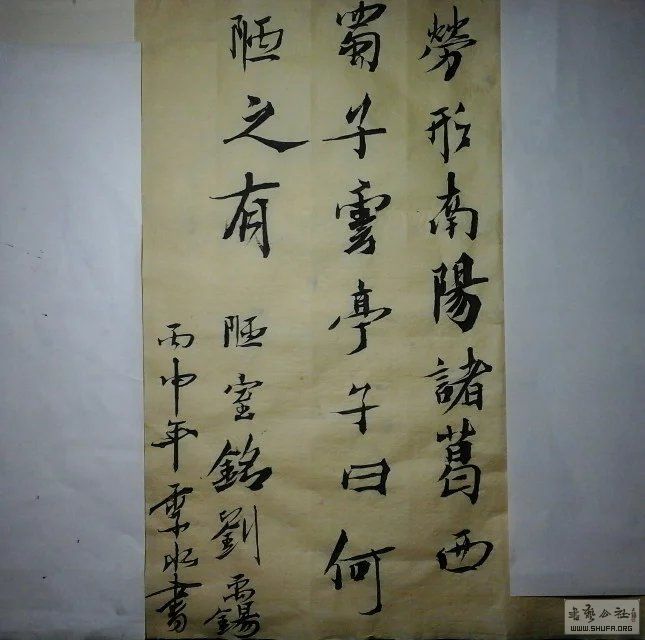 勞形南陽諸葛西
蜀子雲亭子曰何
陋之有
陋室銘劉禹錫
丙申年書
書藝公社
WWW.SHUFA.ORG